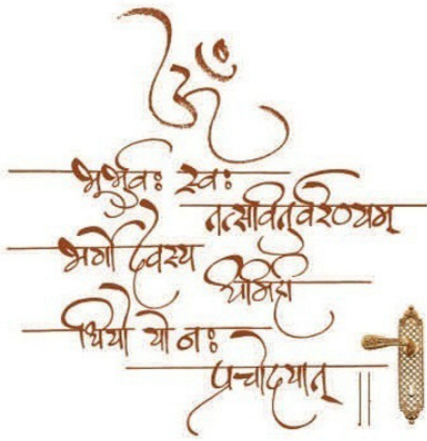 ॐ
भूर्भुवः स्वः
तत्सवितुर्वरेण्यम्
भर्गो देवस्य
धीमहि
धियो यो नः
प्रचोदयात् ॥